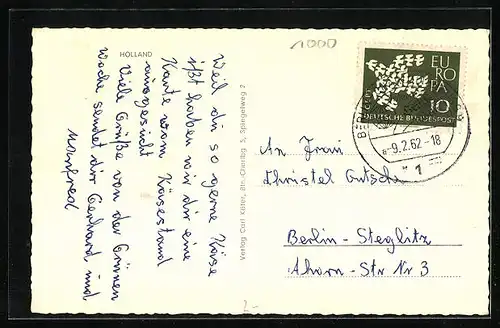 HOLLAND
Weil du so gerne Käse
ißt haben wir dir eine
Karte vom Käsestand
ausgesucht
Viele Grüße von der Grünen
Woche sendet dir Gerhard und
Manfred
Verlag Carl Köfer, Bln.-Charlbg 5, Spiegelweg 2
1000
EUROPA
10
DEUTSCHE BUNDESPOST
BERLIN
-9.2.62-18
1
An Frau
Christel Gutsche
Berlin-Steglitz
Ahorn-Str Nr 3
2-